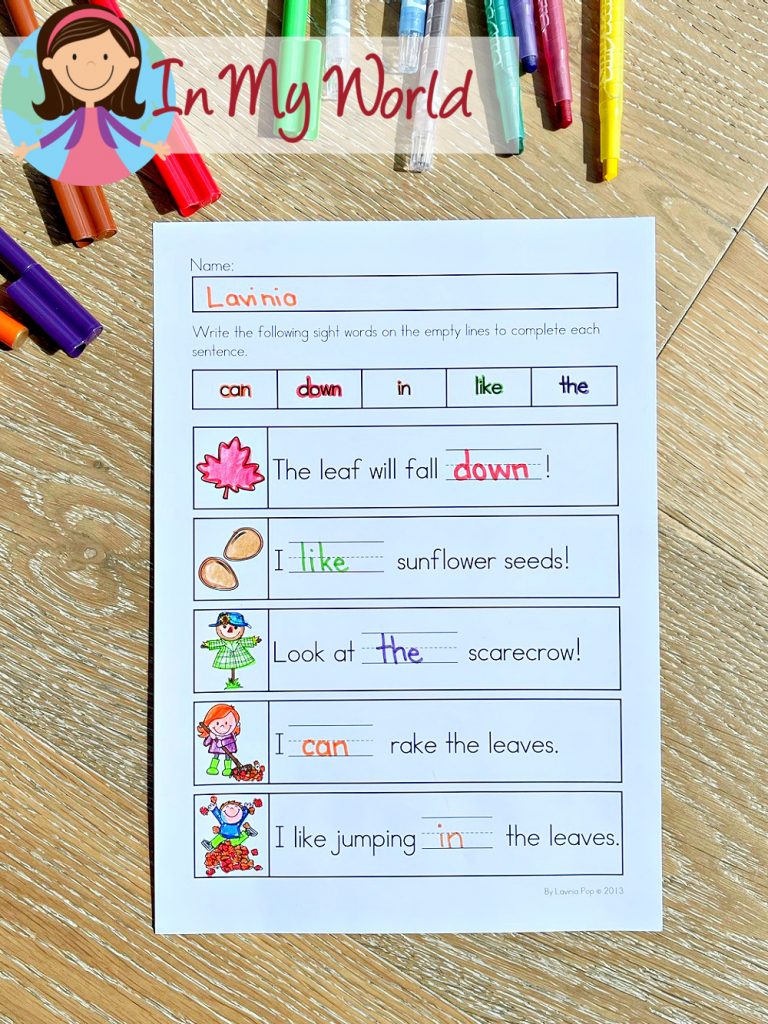 In My World
Name:
Lavinia
Write the following sight words on the empty lines to complete each
sentence.
can down in like the
The leaf will fall down !
I like sunflower seeds!
Look at the scarecrow!
I can rake the leaves.
I like jumping in the leaves.
By Lavinia Pop © 2013